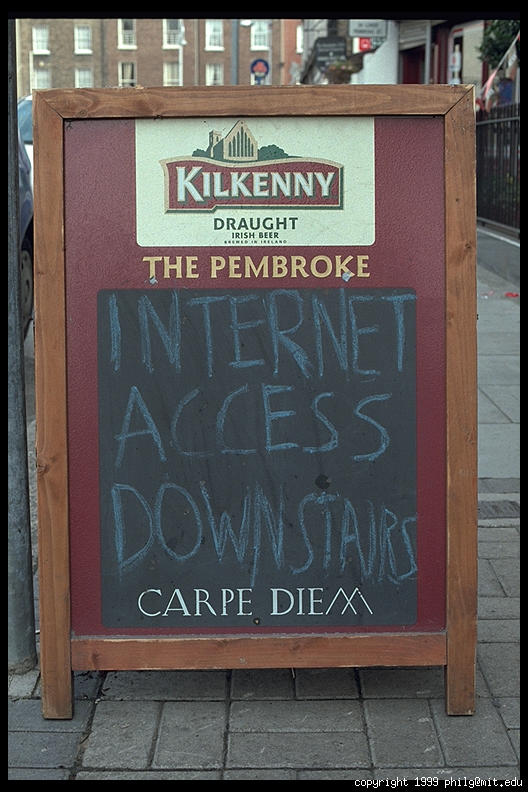 KILKENNY
DRAUGHT
IRISH BEER
BREWED IN IRELAND
THE PEMBROKE
INTERNET
ACCESS
DOWNSTAIRS
CARPE DIEM
copyright 1999 philg@mit.edu